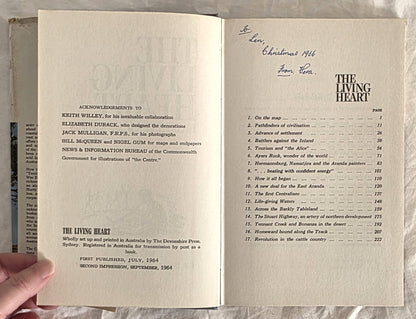 ACKNOWLEDGEMENTS TO
KEITH WILLEY, for his invaluable collaboration
ELIZABETH DURACK, who designed the decorations
JACK MULLIGAN, F.R.P.S., for his photographs
BILL McQUEEN and NIGEL GUM for maps and endpapers
NEWS & INFORMATION BUREAU of the Commonwealth
Government for illustrations of "the Centre."
THE LIVING HEART
Wholly set up and printed in Australia by The Devonshire Press,
Sydney. Registered in Australia for transmission by post as a
book.
FIRST PUBLISHED, JULY, 1964
SECOND IMPRESSION, SEPTEMBER, 1964
To
Len,
Christmas 1966
From Vera.
THE
LIVING
HEART
PAGE
1. On the map 1
2. Pathfinders of civilisation 11
3. Advance of settlement 26
4. Battlers against the Inland 38
5. Tourism and "the Alice" 50
6. Ayers Rock, wonder of the world 71
7. Hermannsburg, Namatjira and the Aranda painters 83
8. ". . . beating with confident energy"
9. How it all began
10. A new deal for the East Aranda
11. The first Centralians
12. Life-giving Waters
13. Across the Barkly Tableland
14. The Stuart Highway, an artery of northern development 175
15. Tennant Creek and Bonanzas in the desert 192
16. Homeward bound along the Track 207
17. Revolution in the cattle country 222